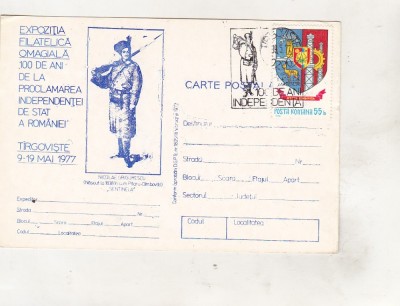 EXPOZIȚIA
FILATELICĂ
OMAGIALĂ
"100 DE ANI
DE LA
PROCLAMAREA
INDEPENDENȚEI
DE STAT
A ROMÂNIEI"
TÎRGOVIȘTE
9-19 MAI 1977
NICOLAE GRIGORESCU
"SENTINELA"
Expeditor
Strada Nr.
Blocul Scara Etajul Apart.
Codul Localitatea
CARTE POȘTALĂ
100 DE ANI
INDEPENDENȚA
POSTA ROMANA 55b
Destinatar
Strada Nr.
Blocul Scara Etajul Apart
Sectorul Județul
Codul Localitatea